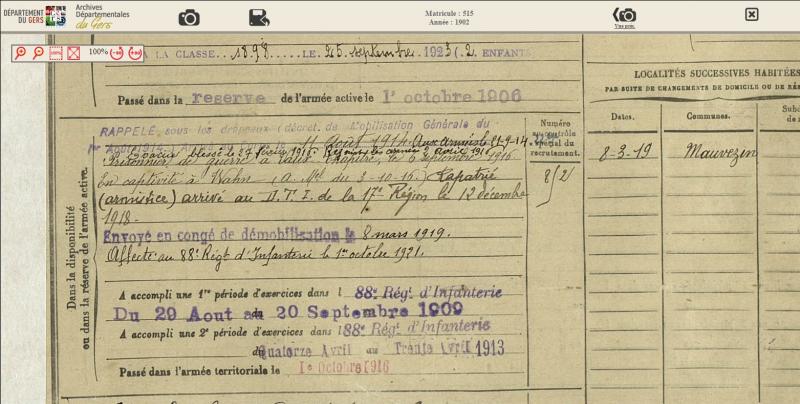 DÉPARTEMENT
DU GERS
Archives
Départementales
du Gers
Matricule : 515
Année : 1902
100%
LA CLASSE 1898 LE 25 septembre 1923 (2 ENFANTS
Passé dans la reserve de l'armée active le 1er octobre 1906
RAPPELÉ, sous les drapeaux (décret de Mobilisation Générale du
1er Août 1914. Août 1914. Aux Armées le 21-9-14.
Prisonnier de guerre à Vaux Chapitre, le 6 septembre 1916
En captivité à Wahn (a. Mel du 3-10-16) Rapatrié
(armistice) arrivé au D.T.I. de la 17e Région le 12 décembre
1918-
Envoyé en congé de démobilisation le 8 mars 1919.
Affecté au 88e Régt d'Infanterie le 1er octobre 1921.
A accompli une 1re période d'exercices dans l 88e Rég. d'Infanterie
Du 29 Aout au 20 Septembre 1909
A accompli une 2e période d'exercices dans l 88e Rég. d'Infanterie
du Quatorze Avril au Trente Avril 1913
Passé dans l'armée territoriale le 1e Octobre 1916
Dans la disponibilité
ou dans la réserve de l'armée active.
Numéro
au contrôle
spécial du
recrutement.
LOCALITÉS SUCCESSIVES HABITÉES
PAR SUITE DE CHANGEMENTS DE DOMICILE OU DE RÉS
Dates.
Communes.
Subd
8-3-19
Mauvezin